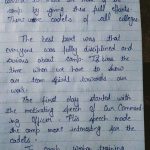 camp by some
There were cadets of all colleges
The best part was that
everyone was fully disciplined and
serious about camp. It was the
time when we have to show
our team spirit towards our
work.
The final day started with
the motivating speech of our Command
ing officer. This speech made
the camp more interesting for the
cadets.
training